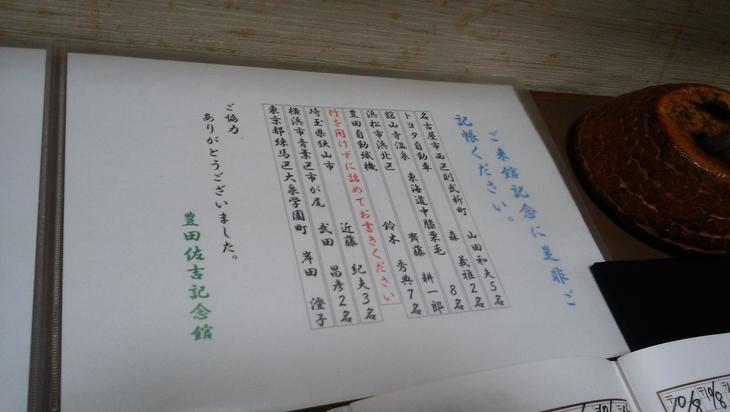 ご来館記念に是非ご
記帳ください。
名古屋市西区則武新町 山田和夫5名
トヨタ自動車 森 義雅2名
舘山寺温泉 東海道中膝栗毛 8名
浜松市浜北区 齊藤 耕一郎
豊田自動織機 鈴木 秀典7名
行を開けずに詰めてお書きください
埼玉県狭山市 近藤 紀夫3名
横浜市青葉区市が尾 武田 昌彦2名
東京都練馬区大泉学園町 岸田 澄子
ご協力
ありがとうございました。
豊田佐吉記念館
10/8